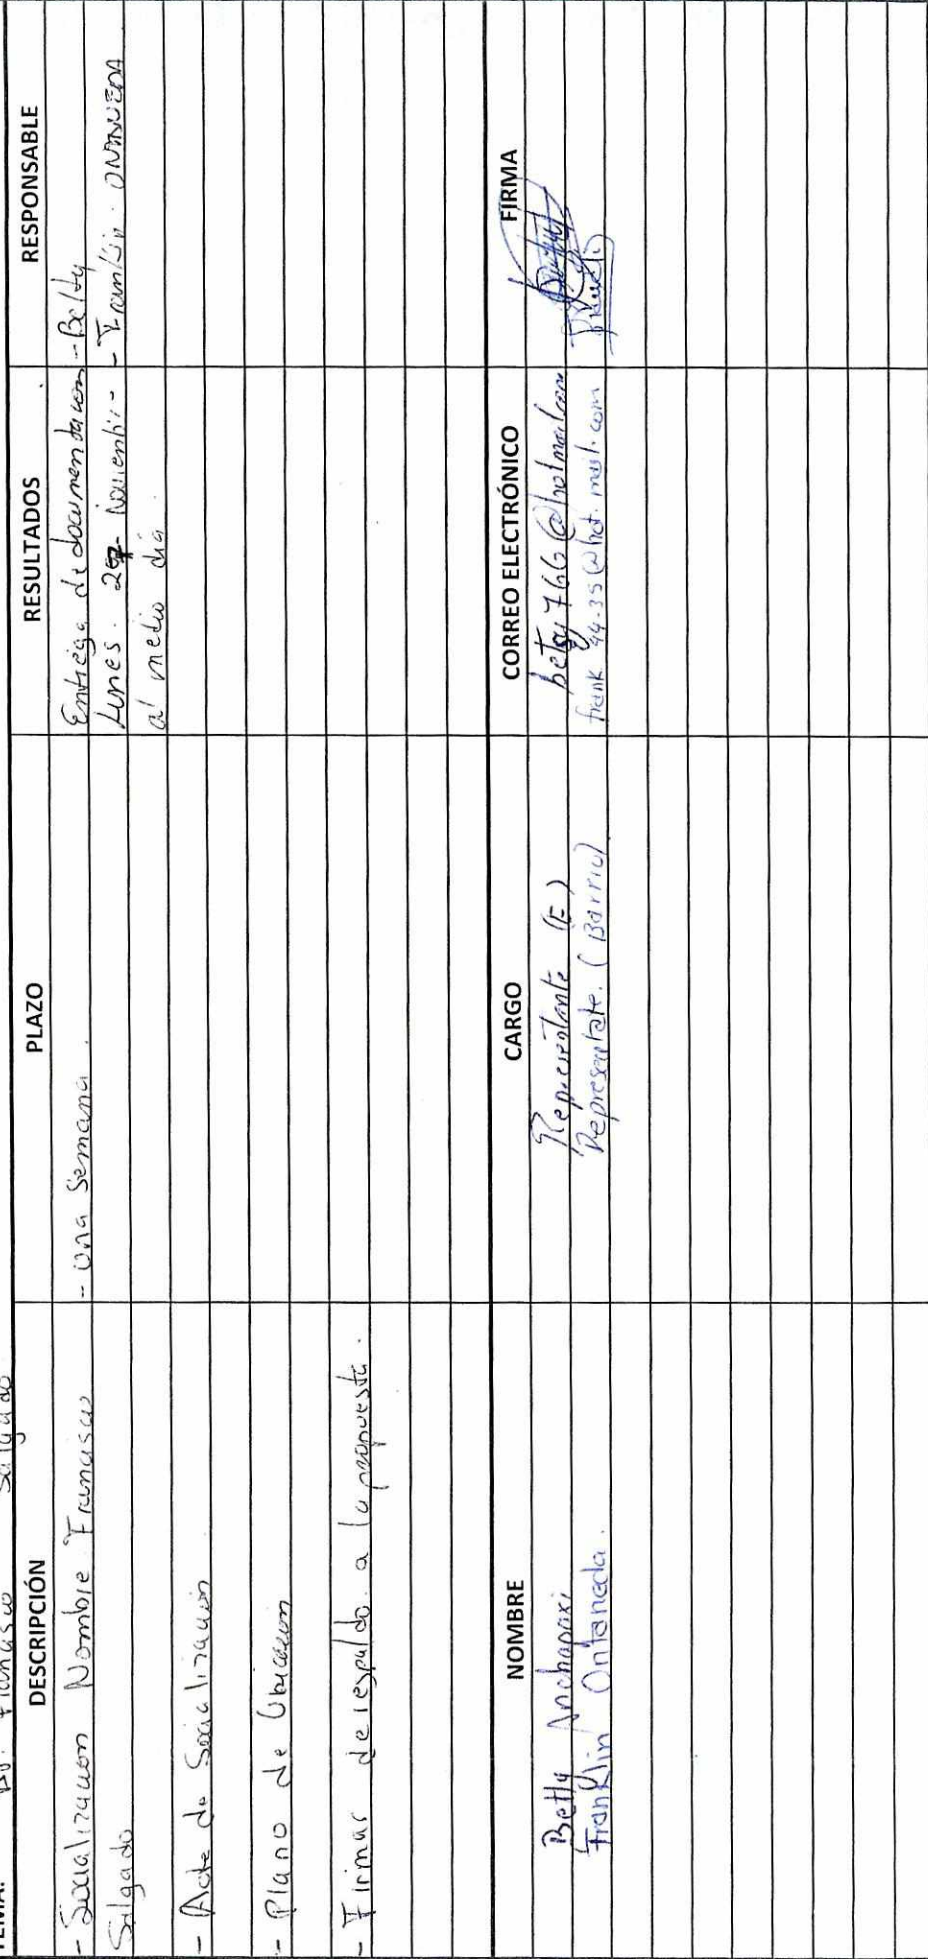 TEMA: Salgado
DESCRIPCIÓN PLAZO RESULTADOS RESPONSABLE
- Socialización Nombre Francisco - Una Semana. Entrega de documentacion - Betty
Salgado Lunes. Noviembre - Franklin ONTANEDA
al medio día
- Acta de Socialización
- Plano de Ubicacion
- Firmas de respaldo a la propuesta.
NOMBRE CARGO CORREO ELECTRÓNICO FIRMA
Betty Anchapaxi Representante (E) betsy766@hotmail.com
Franklin Ontaneda. Representate. (Barrio) frank_44.35@hot.mail.com